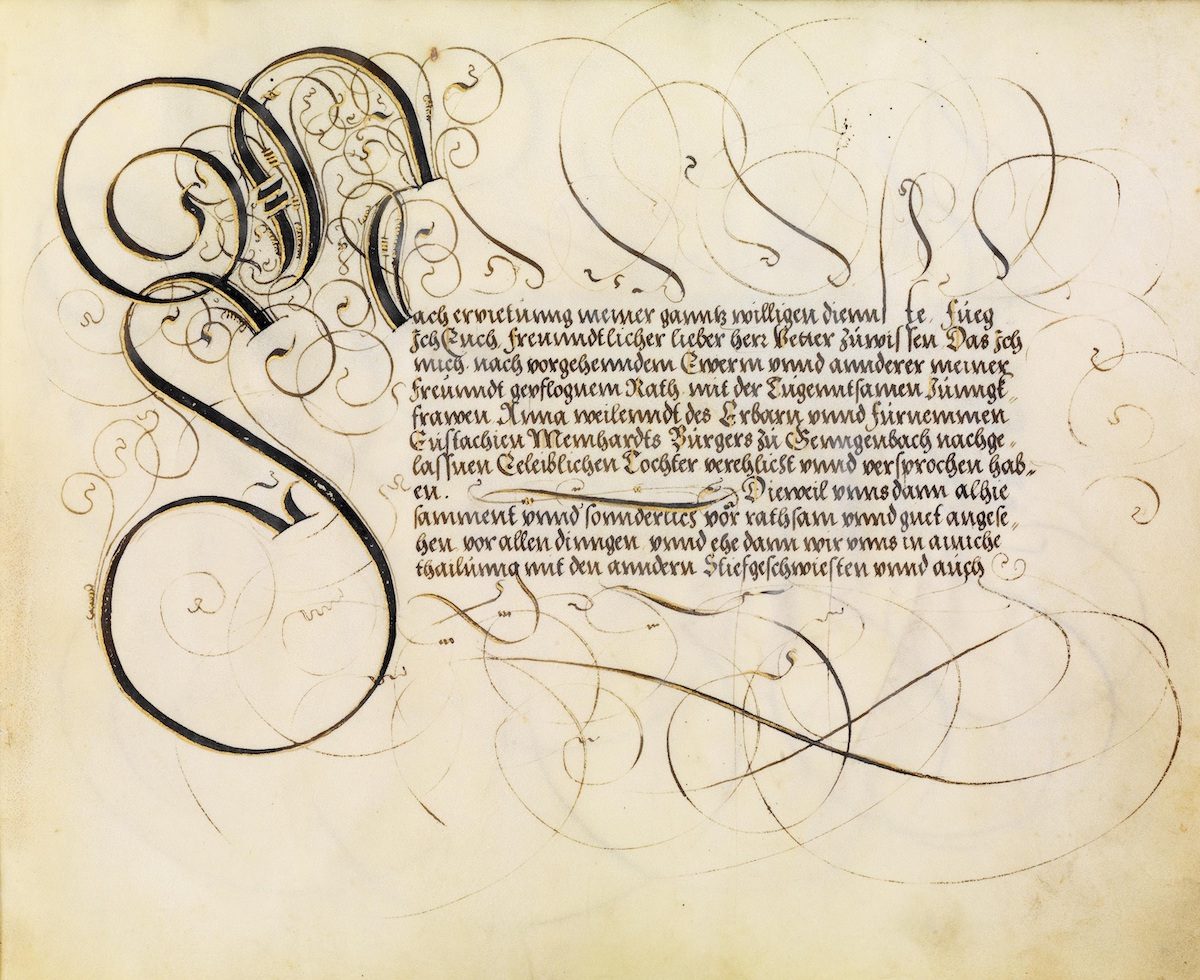 Nach ervietunng meiner ganntz willigen diennste. Füeg
Ich Euch, freunndtlicher lieber herr Vetter zůwissen Das Ich
mich nach vorgehenndem Ewerm vnnd annderer meiner
Freunndt gepflognem Rath mit der Tugenntsamen Junngk-
frawen Anna weilenndt des Erbarn vnnd fürnemmen
Eustachien Meinhardts Burgers zů Genngenbach nachge-
lassnen Eeleiblichen Tochter verehlicht vnnd versprochen hab-
en. Dieweil vnns dann alhie
samment vnnd sonnderlich vor rathsam vnnd guet angese-
hen, vor allen dinngen, vnnd ehe dann wir vnns in ainiche
thailunng mit den anndern Stiefgeschwiesten vnnd auch